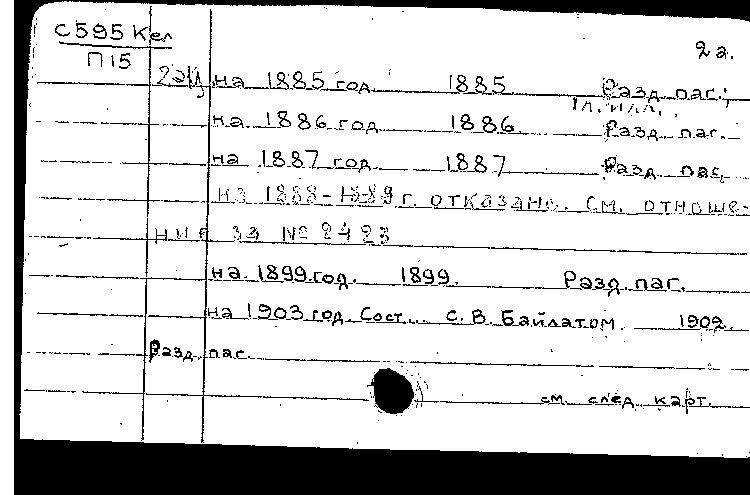 С595 Кел
П15
2а.
2эк на 1885 год 1885 Разд. паг.;
1 л. илл.
на 1886 год 1886 Разд. паг.
на 1887 год 1887 Разд. паг.
на 1888-1889 г. отказано. См. отноше-
ние за № 2423
на 1899 год. 1899. Разд. паг.
на 1903 год. Сост. С. В. Байлатом. 1902.
Разд. паг.
см. след. карт.